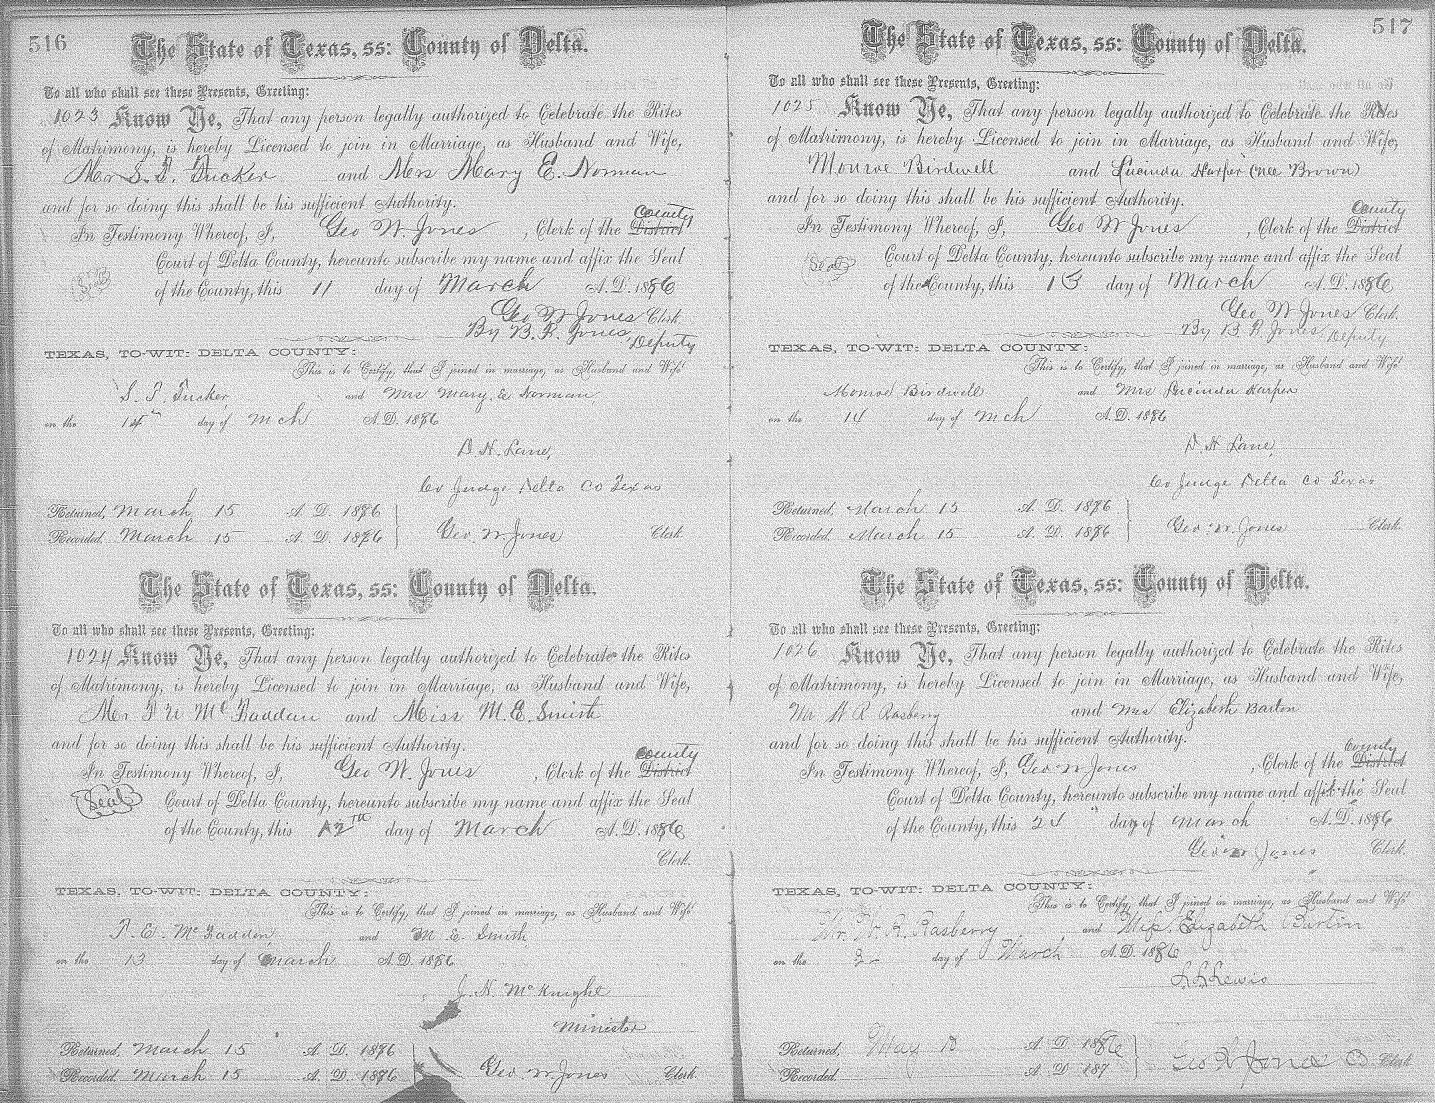 516
The State of Texas, ss: County of Delta.
To all who shall see these Presents, Greeting:
1023 Know Ye, That any person legally authorized to Celebrate the Rites
of Matrimony, is hereby Licensed to join in Marriage, as Husband and Wife,
Mr S. T. Tucker and Mrs Mary E. Norman
and for so doing this shall be his sufficient Authority.
County
In Testimony Whereof, I, Geo W. Jones, Clerk of the District
(Seal) Court of Delta County, hereunto subscribe my name and affix the Seal
of the County, this 11 day of March A.D. 1886
Geo W Jones Clerk.
By B. F. Jones, Deputy
TEXAS, TO-WIT: DELTA COUNTY:
This is to Certify, that I joined in marriage, as Husband and Wife
S. T. Tucker and Mrs Mary. E Norman
on the 14th day of Mch A.D. 1886
D. H. Lane,
Co Judge Delta Co Texas
Returned, March 15 A. D. 1886
Recorded, March 15 A. D. 1886 Geo. W Jones Clerk.
The State of Texas, ss: County of Delta.
To all who shall see these Presents, Greeting:
1024 Know Ye, That any person legally authorized to Celebrate the Rites
of Matrimony, is hereby Licensed to join in Marriage, as Husband and Wife,
Mr McFaddan and Miss M. E. Smith
and for so doing this shall be his sufficient Authority.
County
In Testimony Whereof, I, Geo W. Jones, Clerk of the District
(Seal) Court of Delta County, hereunto subscribe my name and affix the Seal
of the County, this 12th day of March A.D. 1886
Clerk.
TEXAS, TO-WIT: DELTA COUNTY:
This is to Certify, that I joined in marriage, as Husband and Wife
McFadden and M E. Smith
on the 13 day of March A.D. 1886
J. H. McKnight
Minister
Returned, March 15 A. D. 1886
Recorded, March 15 A. D. 1886 Geo W Jones Clerk.
517
The State of Texas, ss: County of Delta.
To all who shall see these Presents, Greeting:
1025 Know Ye, That any person legally authorized to Celebrate the Rites
of Matrimony, is hereby Licensed to join in Marriage, as Husband and Wife,
Monroe Birdwell and Lucinda Harper (nee Brown)
and for so doing this shall be his sufficient Authority.
County
In Testimony Whereof, I, Geo W Jones, Clerk of the District
(Seal) Court of Delta County, hereunto subscribe my name and affix the Seal
of the County, this 13 day of March A.D. 1886
Geo W Jones Clerk.
By B F. Jones Deputy
TEXAS, TO-WIT: DELTA COUNTY:
This is to Certify, that I joined in marriage, as Husband and Wife
Monroe Birdwell and Mrs Lucinda Harper
on the 14 day of Mch A.D. 1886
D. H Lane,
Co Judge Delta Co Texas
Returned, March 15 A. D. 1886
Recorded, March 15 A. D. 1886 Geo. W. Jones Clerk.
The State of Texas, ss: County of Delta.
To all who shall see these Presents, Greeting:
1026 Know Ye, That any person legally authorized to Celebrate the Rites
of Matrimony, is hereby Licensed to join in Marriage, as Husband and Wife,
Mr Rasberry and Mrs Elizabeth Barton
and for so doing this shall be his sufficient Authority.
County
In Testimony Whereof, I, Geo W Jones, Clerk of the District
Court of Delta County, hereunto subscribe my name and affix the Seal
of the County, this 24 day of March A.D. 1886
Geo W Jones Clerk.
TEXAS, TO-WIT: DELTA COUNTY:
This is to Certify, that I joined in marriage, as Husband and Wife
Mr. Rasberry and Elizabeth
on the day of March A.D. 1886
Lewis
Returned, May 13 A. D 1886
Recorded. A. D 187 Geo W Jones Clerk